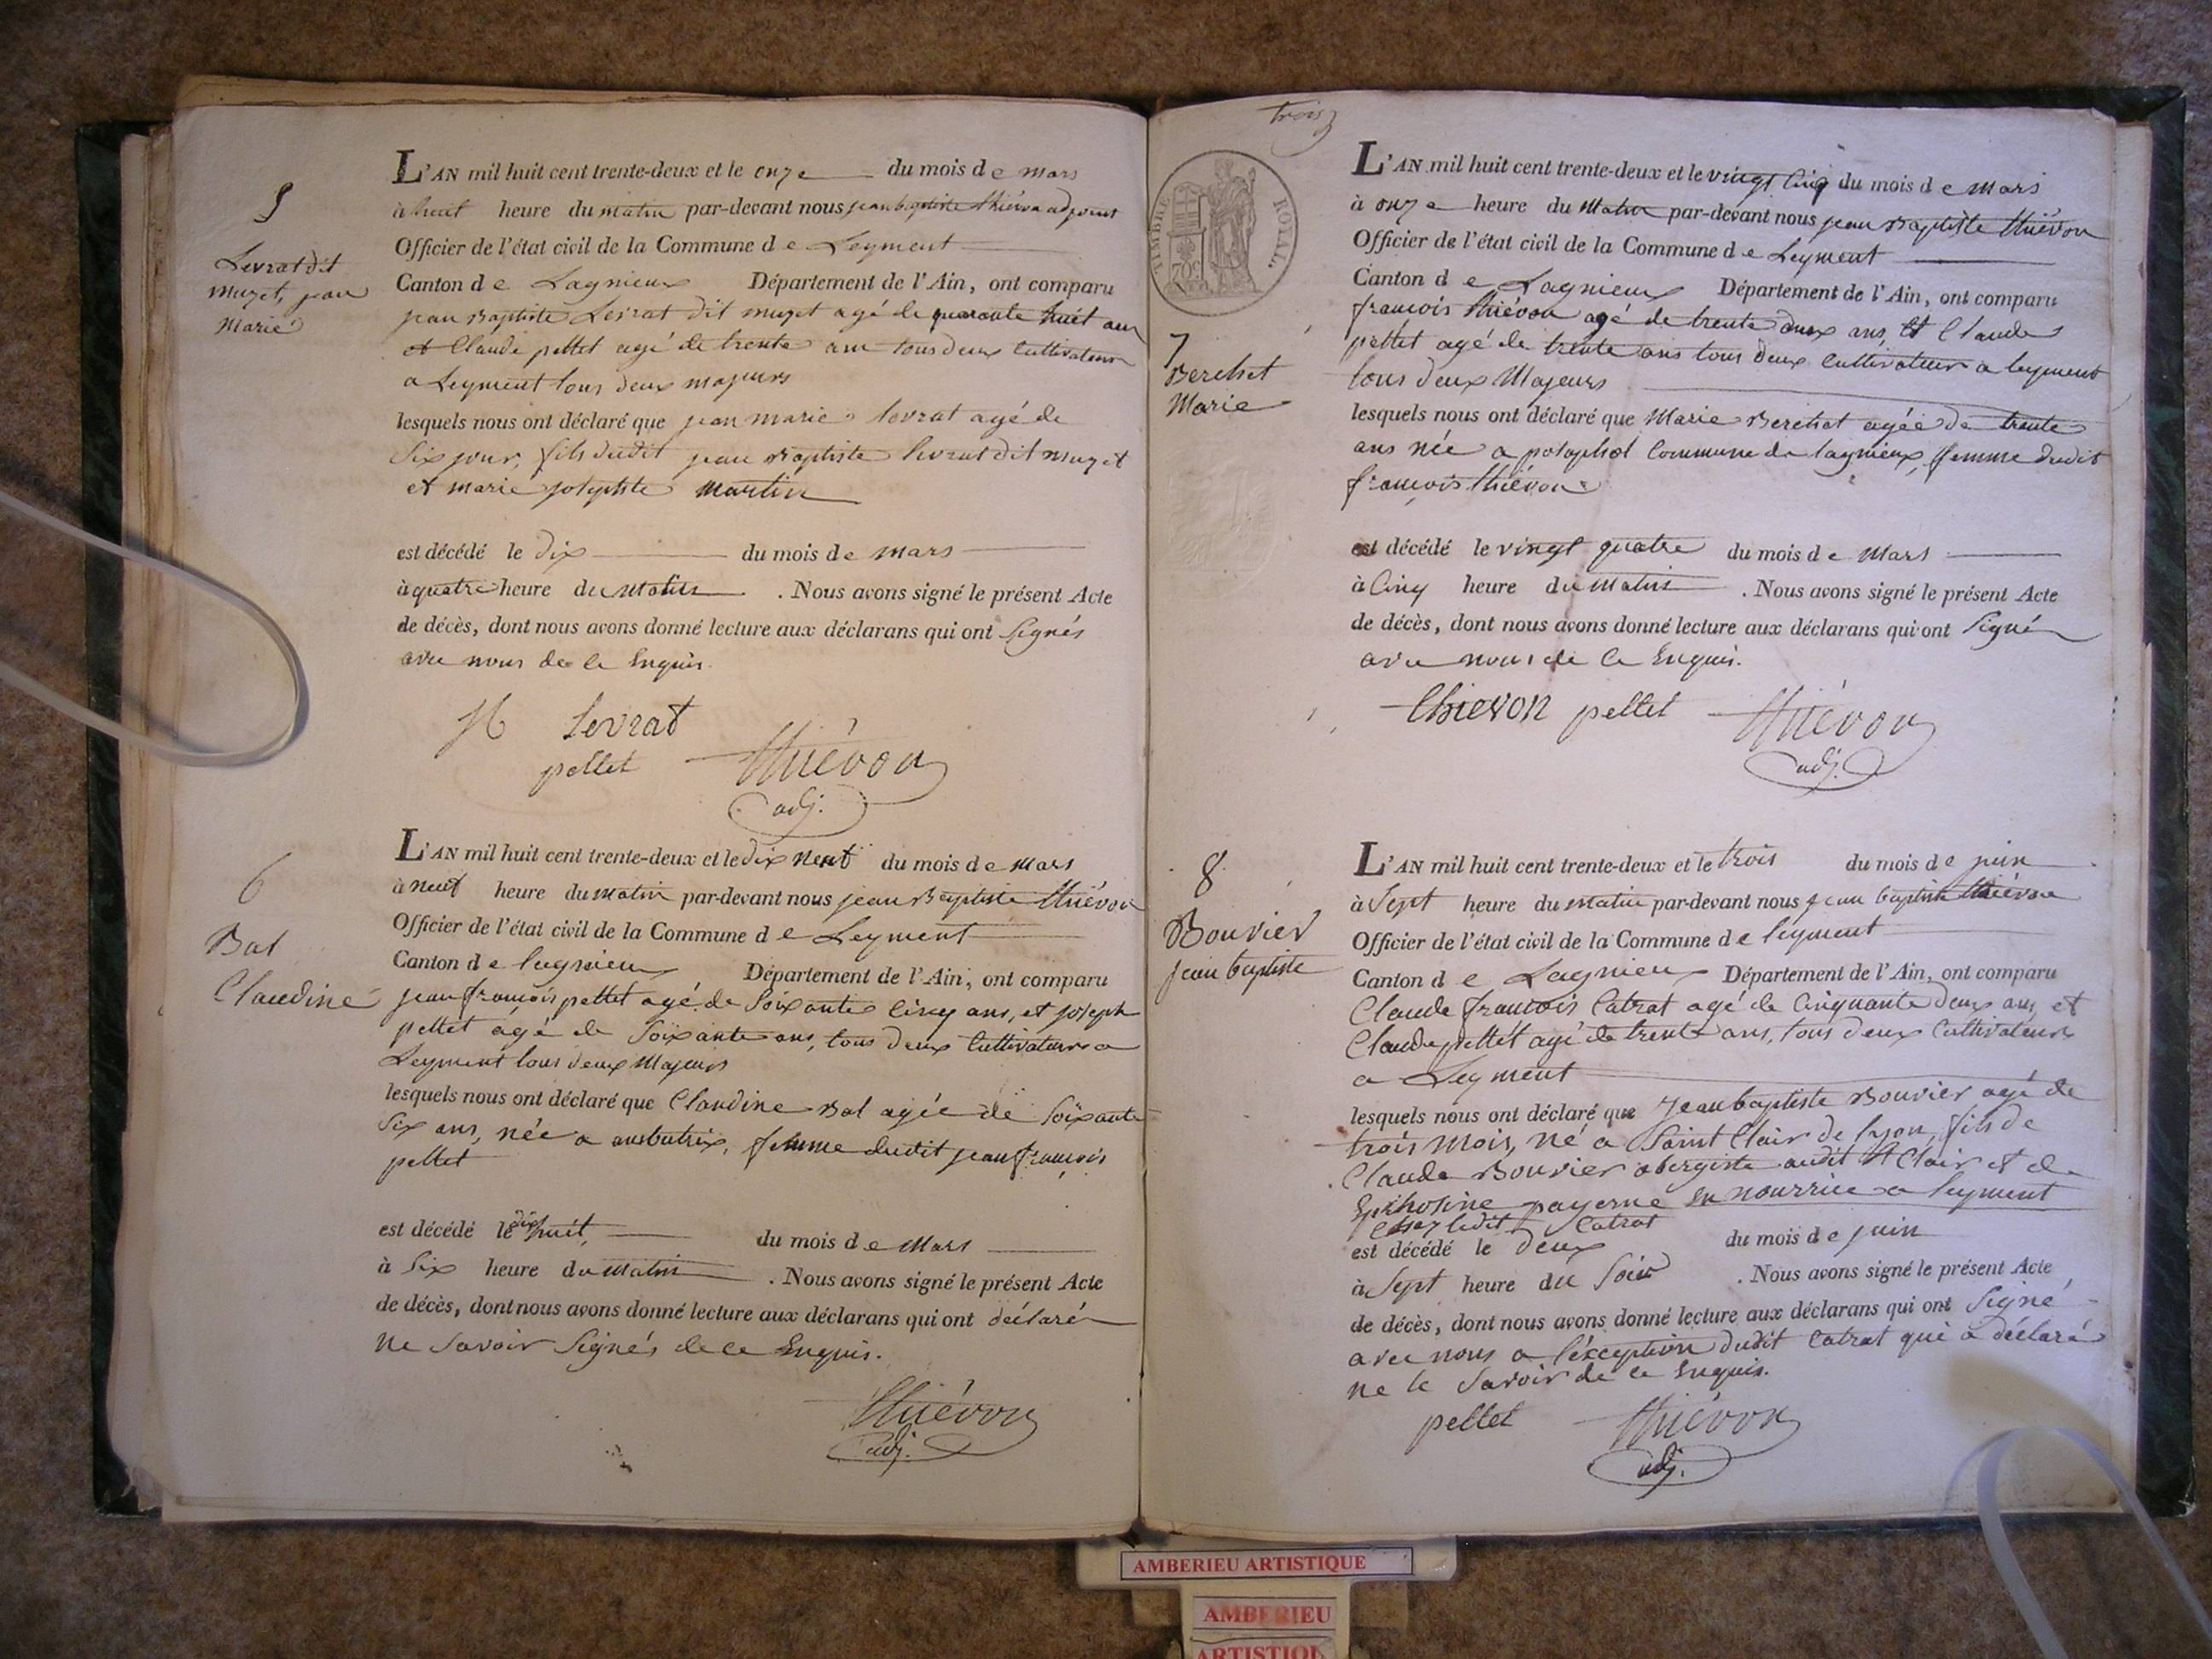 5
Levrat dit
muzet, jean
Marie
L'AN mil huit cent trente-deux et le onze du mois de mars
à huit heure du matin par-devant nous jean baptiste thiévon adjoint
Officier de l'état civil de la Commune de Leyment
Canton de Lagnieux Département de l'Ain, ont comparu
jean Baptiste Levrat dit muzet agé de quarante huit ans
et Claude pettet agé de trente ans tous deux Cultivateurs
a Leyment tous deux majeurs
lesquels nous ont déclaré que jean marie levrat agé de
Six jour, fils dudit jean Baptiste levrat dit muzet
et marie josephte martin
est décédé le dix du mois de mars
à quatre heure du Matin . Nous avons signé le présent Acte
de décès, dont nous avons donné lecture aux déclarans qui ont Signés
avec nous de ce Enquis.
Levrat
pellet Thiévon
adj.
6
Bal
Claudine
L'AN mil huit cent trente-deux et le dix neuf du mois de mars
à neuf heure du matin par-devant nous jean Baptiste thiévon
Officier de l'état civil de la Commune de Leyment
Canton de lagnieux Département de l'Ain, ont comparu
jean françois pettet agé de Soixante Cinq ans, et joseph
pettet agé de Soixante ans, tous deux Cultivateurs a
Leyment tous deux Majeurs
lesquels nous ont déclaré que Claudine Bal agée de Soixante
Six ans, née a ambutrix, femme dudit jean françois
pettet
est décédé le dix huit, du mois de Mars
à Six heure du Matin . Nous avons signé le présent Acte
de décès, dont nous avons donné lecture aux déclarans qui ont déclaré
ne Savoir Signés de ce Enquis.
Thiévon
adj.
trois
TIMBRE ROYAL.
70c
7
Berchet
Marie
L'AN mil huit cent trente-deux et le vingt Cinq du mois de Mars
à onze heure du Matin par-devant nous jean Baptiste thiévon
Officier de l'état civil de la Commune de Leyment
Canton de Lagnieux Département de l'Ain, ont comparu
françois thiévon agé de trente deux ans, et Claude
pettet agé de trente ans tous deux Cultivateurs a leyment
tous deux Majeurs
lesquels nous ont déclaré que Marie Berchet agée de trente
ans née a posaphol Commune de lagnieux, femme dudit
françois thiévon
est décédé le vingt quatre du mois de Mars
à Cinq heure du Matin . Nous avons signé le présent Acte
de décès, dont nous avons donné lecture aux déclarans qui ont Signé
avec nous de ce Enquis.
thievon pellet Thiévon
adj.
8
Bouvier
jean baptiste
L'AN mil huit cent trente-deux et le trois du mois de juin
à Sept heure du matin par-devant nous jean baptiste thiévon
Officier de l'état civil de la Commune de leyment
Canton de Lagnieux Département de l'Ain, ont comparu
Claude françois Catrat agé de Cinquante deux ans, et
Claude pettet agé de trente ans, tous deux Cultivateurs
a Leyment
lesquels nous ont déclaré que jean baptiste Bouvier agé de
trois mois, né a Saint Clair de lyon, fils de
Claude Bouvier obergiste audit St Clair et de
payerne en nourrice a leyment
Chez ledit Catrat
est décédé le deux du mois de juin
à Sept heure du Soir . Nous avons signé le présent Acte
de décès, dont nous avons donné lecture aux déclarans qui ont Signé
avec nous a l'exception dudit Catrat qui a déclaré
ne le Savoir de ce Enquis.
pellet Thiévon
adj.
AMBERIEU ARTISTIQUE
AMBERIEU
ARTISTIQU